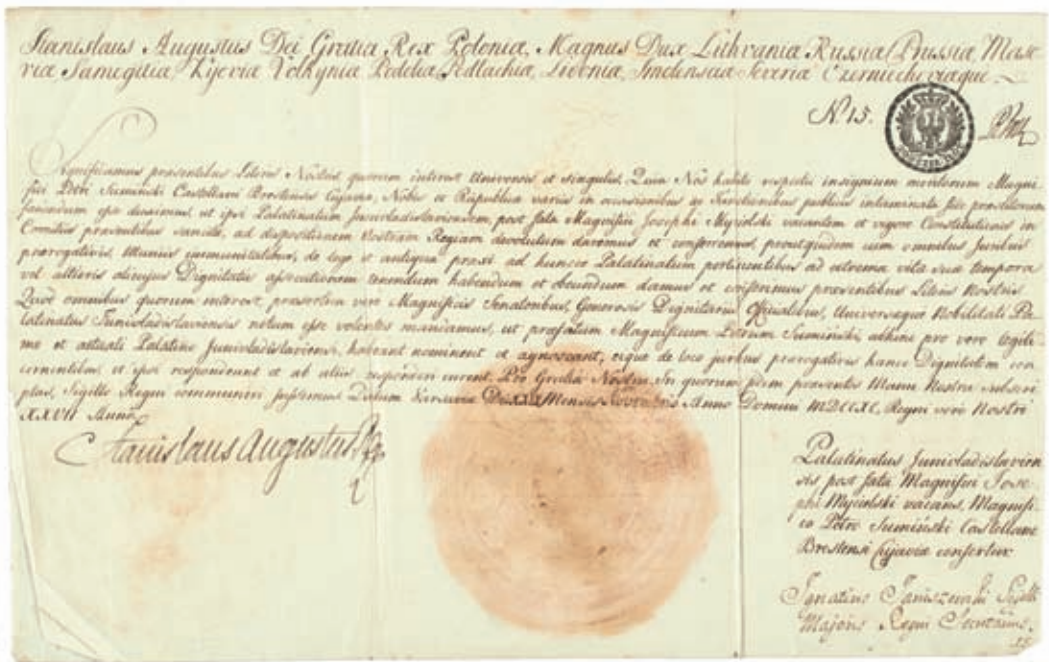 Stanislaus Augustus Dei Gratia Rex Poloniæ, Magnus Dux Lithvaniæ Russiæ, Prussiæ, Maso-
viæ Samogitiæ, Kijoviæ Volhyniæ Podoliæ, Podlachiæ, Livoniæ, Smolensciæ Severiæ Czerniechoviæque
N. 15.
Significamus præsentibus Literis Nostris quorum interest Universis et singulis, Quia Nos habito respectu insignium meritorum Magni-
fici Petri Sumiński Castellani Brestensis Cujaviæ, Nobis et Reipublicæ variis in occasionibus ac functionibus publicis
faciendum esse duximus, ut ipsi Palatinatum Junivladislaviensem, post fata Magnifici Josephi Mycielski vacantem et vigore Constitutionis in
Comitiis præsentibus sancitæ, ad dispositionem Nostram Regiam devolutum daremus et conferremus, prout quidem cum omnibus Juribus
prærogativis, titulis immunitatibus, de lege et antiqua praxi ad huncce Palatinatum pertinentibus ad extrema vitæ suæ tempora
vel alterius cujusque Dignitatis assecutionem tenendum habendum et obeundum damus et conferimus præsentibus Literis Nostris
Quod omnibus quorum interest, præsertim vero Magnificis Senatoribus, Generosis Dignitariis Officialibus, Universæque Nobilitati Pa-
latinatus Junivladislaviensis notum esse volentes mandamus, ut præfatum Magnificum Petrum Sumiński, abhinc pro vero legiti-
mo et actuali Palatino Junivladislaviensi, habeant nominent et agnoscant, eique de loco juribus prærogativis hancce Dignitatem con-
cernentibus et ipsi respondeant et ab aliis responderi curent. Pro Gratia Nostra. In quorum fidem præsentes Manu Nostra subscri-
ptas, Sigillo Regni communiri jussimus Datum Varsaviæ Die Mensis Novembris Anno Domini MDCCXC, Regni vero Nostri
XXVII Anno
Stanislaus Augustus Rex
Palatinatus Junivladislavien-
sis post fata Magnifici Jose-
phi Mycielski vacans, Magnifi-
co Petro Sumiński Castellano
Brestensi Cujaviæ confertur
Ignatius Janiszewski Sigilli
Majoris Regni Secretarius.